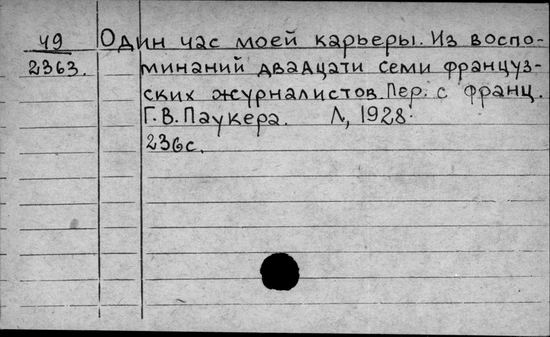 49 Один час моей карьеры. Из воспо-
2363. минаний двадцати семи француз-
ских журналистов. Пер. с франц.
Г. В. Паукера. Л, 1928.
236с.